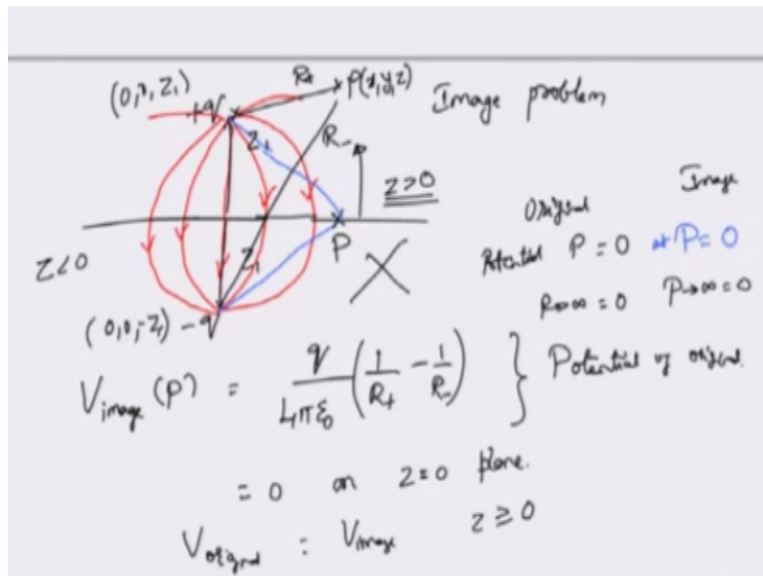 (0,0,Z₁)
+q
R₊
P(x,y,z)
Image problem
Z₁
R₋
Z>0
Z<0
P
Z₁
(0,0,-Z₁) -q
Original
Image
Potential P = 0 at P = 0
R→∞ = 0 P→∞ = 0
V_image (P) = q/4πε₀ (1/R₊ - 1/R₋) } Potential of original.
= 0 on Z=0 plane.
V_original = V_image Z ≥ 0